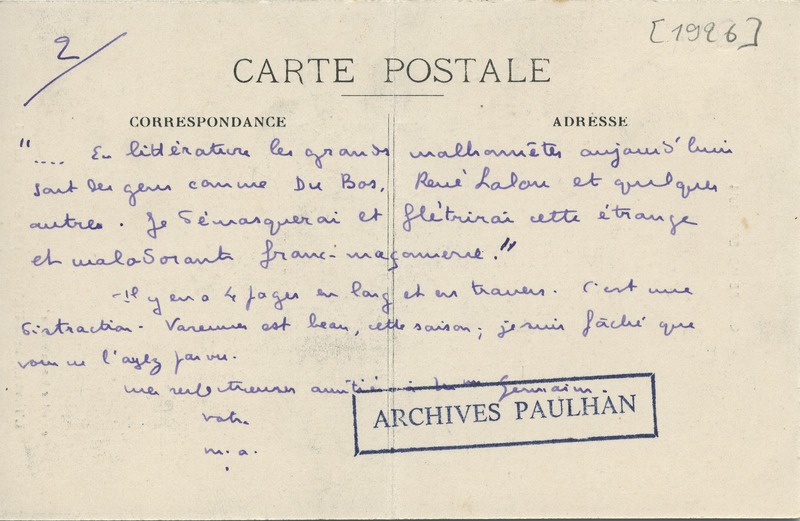 2
[1926]
CARTE POSTALE
CORRESPONDANCE
ADRESSE
".... En littérature les grands malhonnêtes aujourd'hui
sont des gens comme Du Bos, René Lalou et quelques
autres. Je démasquerai et flétrirai cette étrange
et malodorante franc-maçonnerie."
- Il y en a 4 pages en long et en travers. C'est une
distraction. Varennes est beau, cette saison ; je suis fâché que
vous ne l'ayez pas vu.
mes respectueuses amitiés à Germaine.
votre
m. a.
ARCHIVES PAULHAN